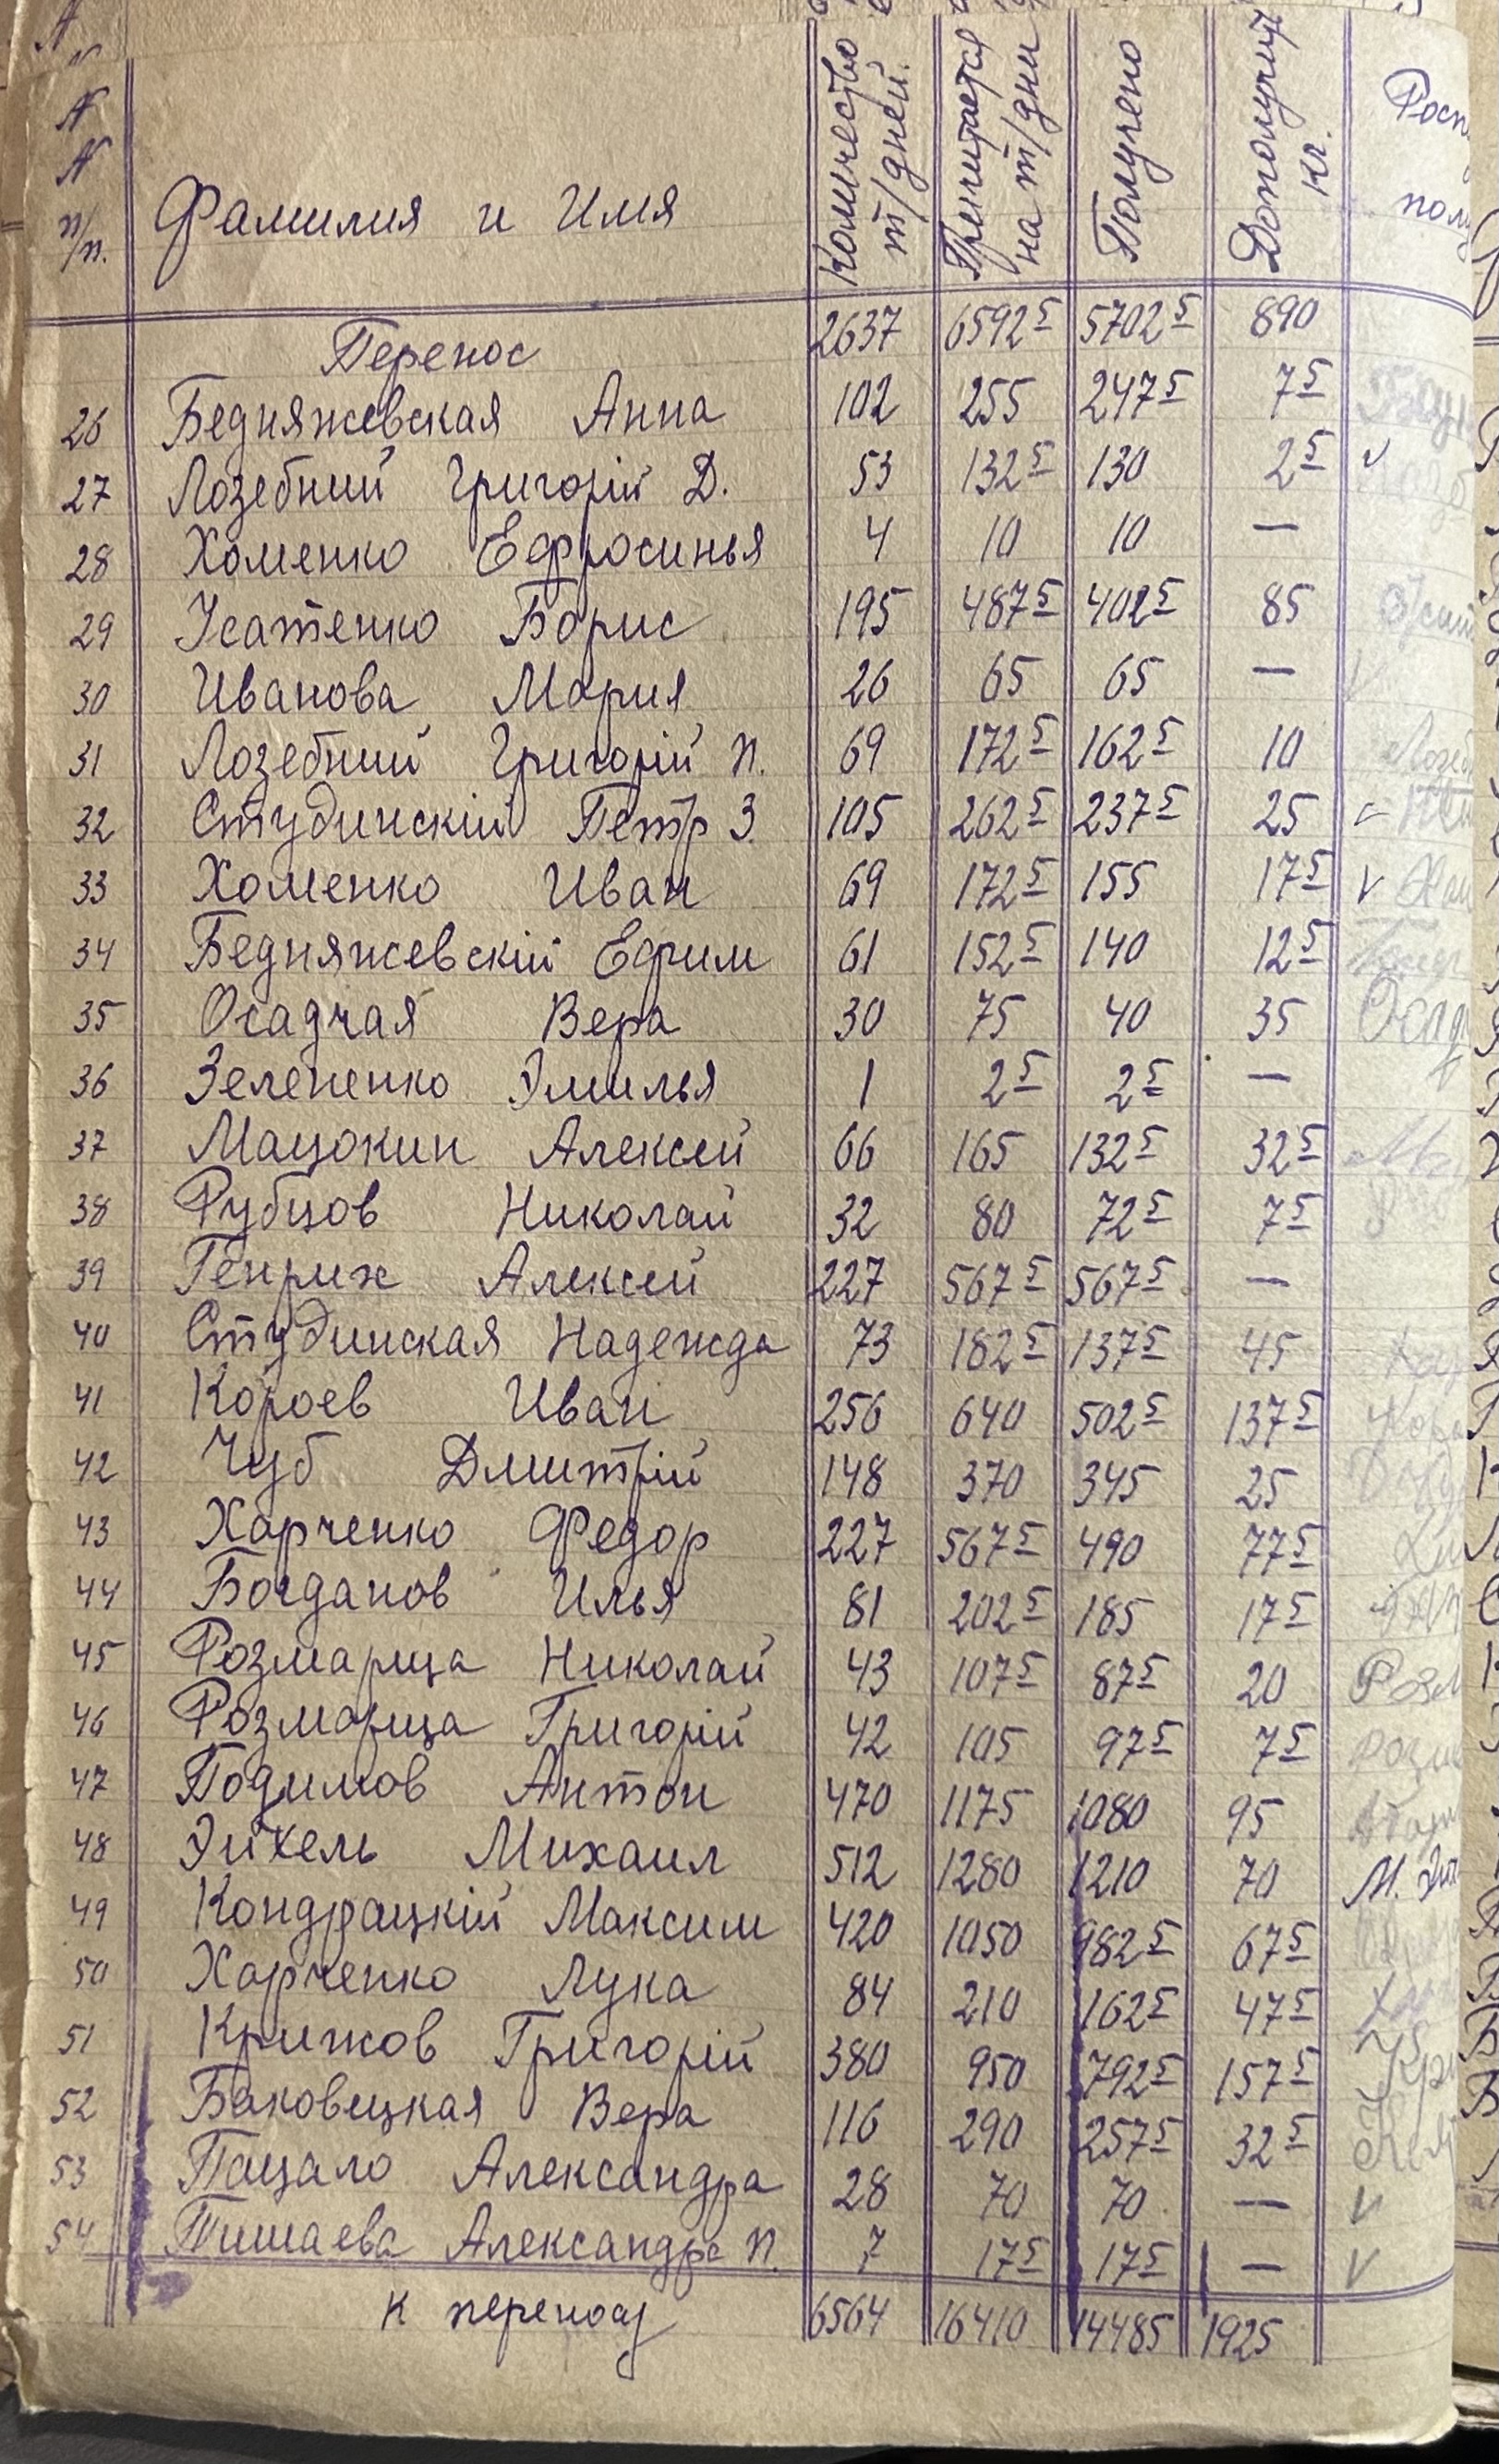 N N п/п. Фамилия и Имя Количество т/дней. Причитается на т/дни Получено Дополучит кг.
Перенос 2637 6592 5 5702 5 890
26 Бедняжевская Анна 102 255 247 5 7 5
27 Лозебний Григорій Д. 53 132 5 130 2 5 v
28 Хоменко Ефросинья 4 10 10 —
29 Усатенко Борис 195 487 5 402 5 85
30 Иванова Мария 26 65 65 —
31 Лозебний Григорій П. 69 172 5 162 5 10
32 Студинскій Петр З. 105 262 5 237 5 25 v
33 Хоменко Иван 69 172 5 155 17 5 v
34 Бедняжевскій Ефим 61 152 5 140 12 5
35 Осадчая Вера 30 75 40 35 Осад
36 Зелененко Эмилья 1 2 5 2 5 —
37 Мацокин Алексей 66 165 132 5 32 5
38 Рубцов Николай 32 80 72 5 7 5
39 Генрих Алексей 227 567 5 567 5 —
40 Студинская Надежда 73 182 5 137 5 45
41 Короев Иван 256 640 502 5 137 5
42 Чуб Дмитрій 148 370 345 25
43 Харченко Федор 227 567 5 490 77 5
44 Богданов Илья 81 202 5 185 17 5
45 Розмарица Николай 43 107 5 87 5 20 Розм
46 Розмарица Григорій 42 105 97 5 7 5
47 Подимов Антон 470 1175 1080 95
48 Эйхель Михаил 512 1280 1210 70
49 Кондрацкій Максим 420 1050 982 5 67 5
50 Харченко Лука 84 210 162 5 47 5
51 Крижов Григорій 380 950 792 5 157 5
52 Баковецкая Вера 116 290 257 5 32 5
53 Пацало Александра 28 70 70 — v
54 Тишаева Александра П. 7 17 5 17 5 — v
к переносу 6564 16410 14485 1925